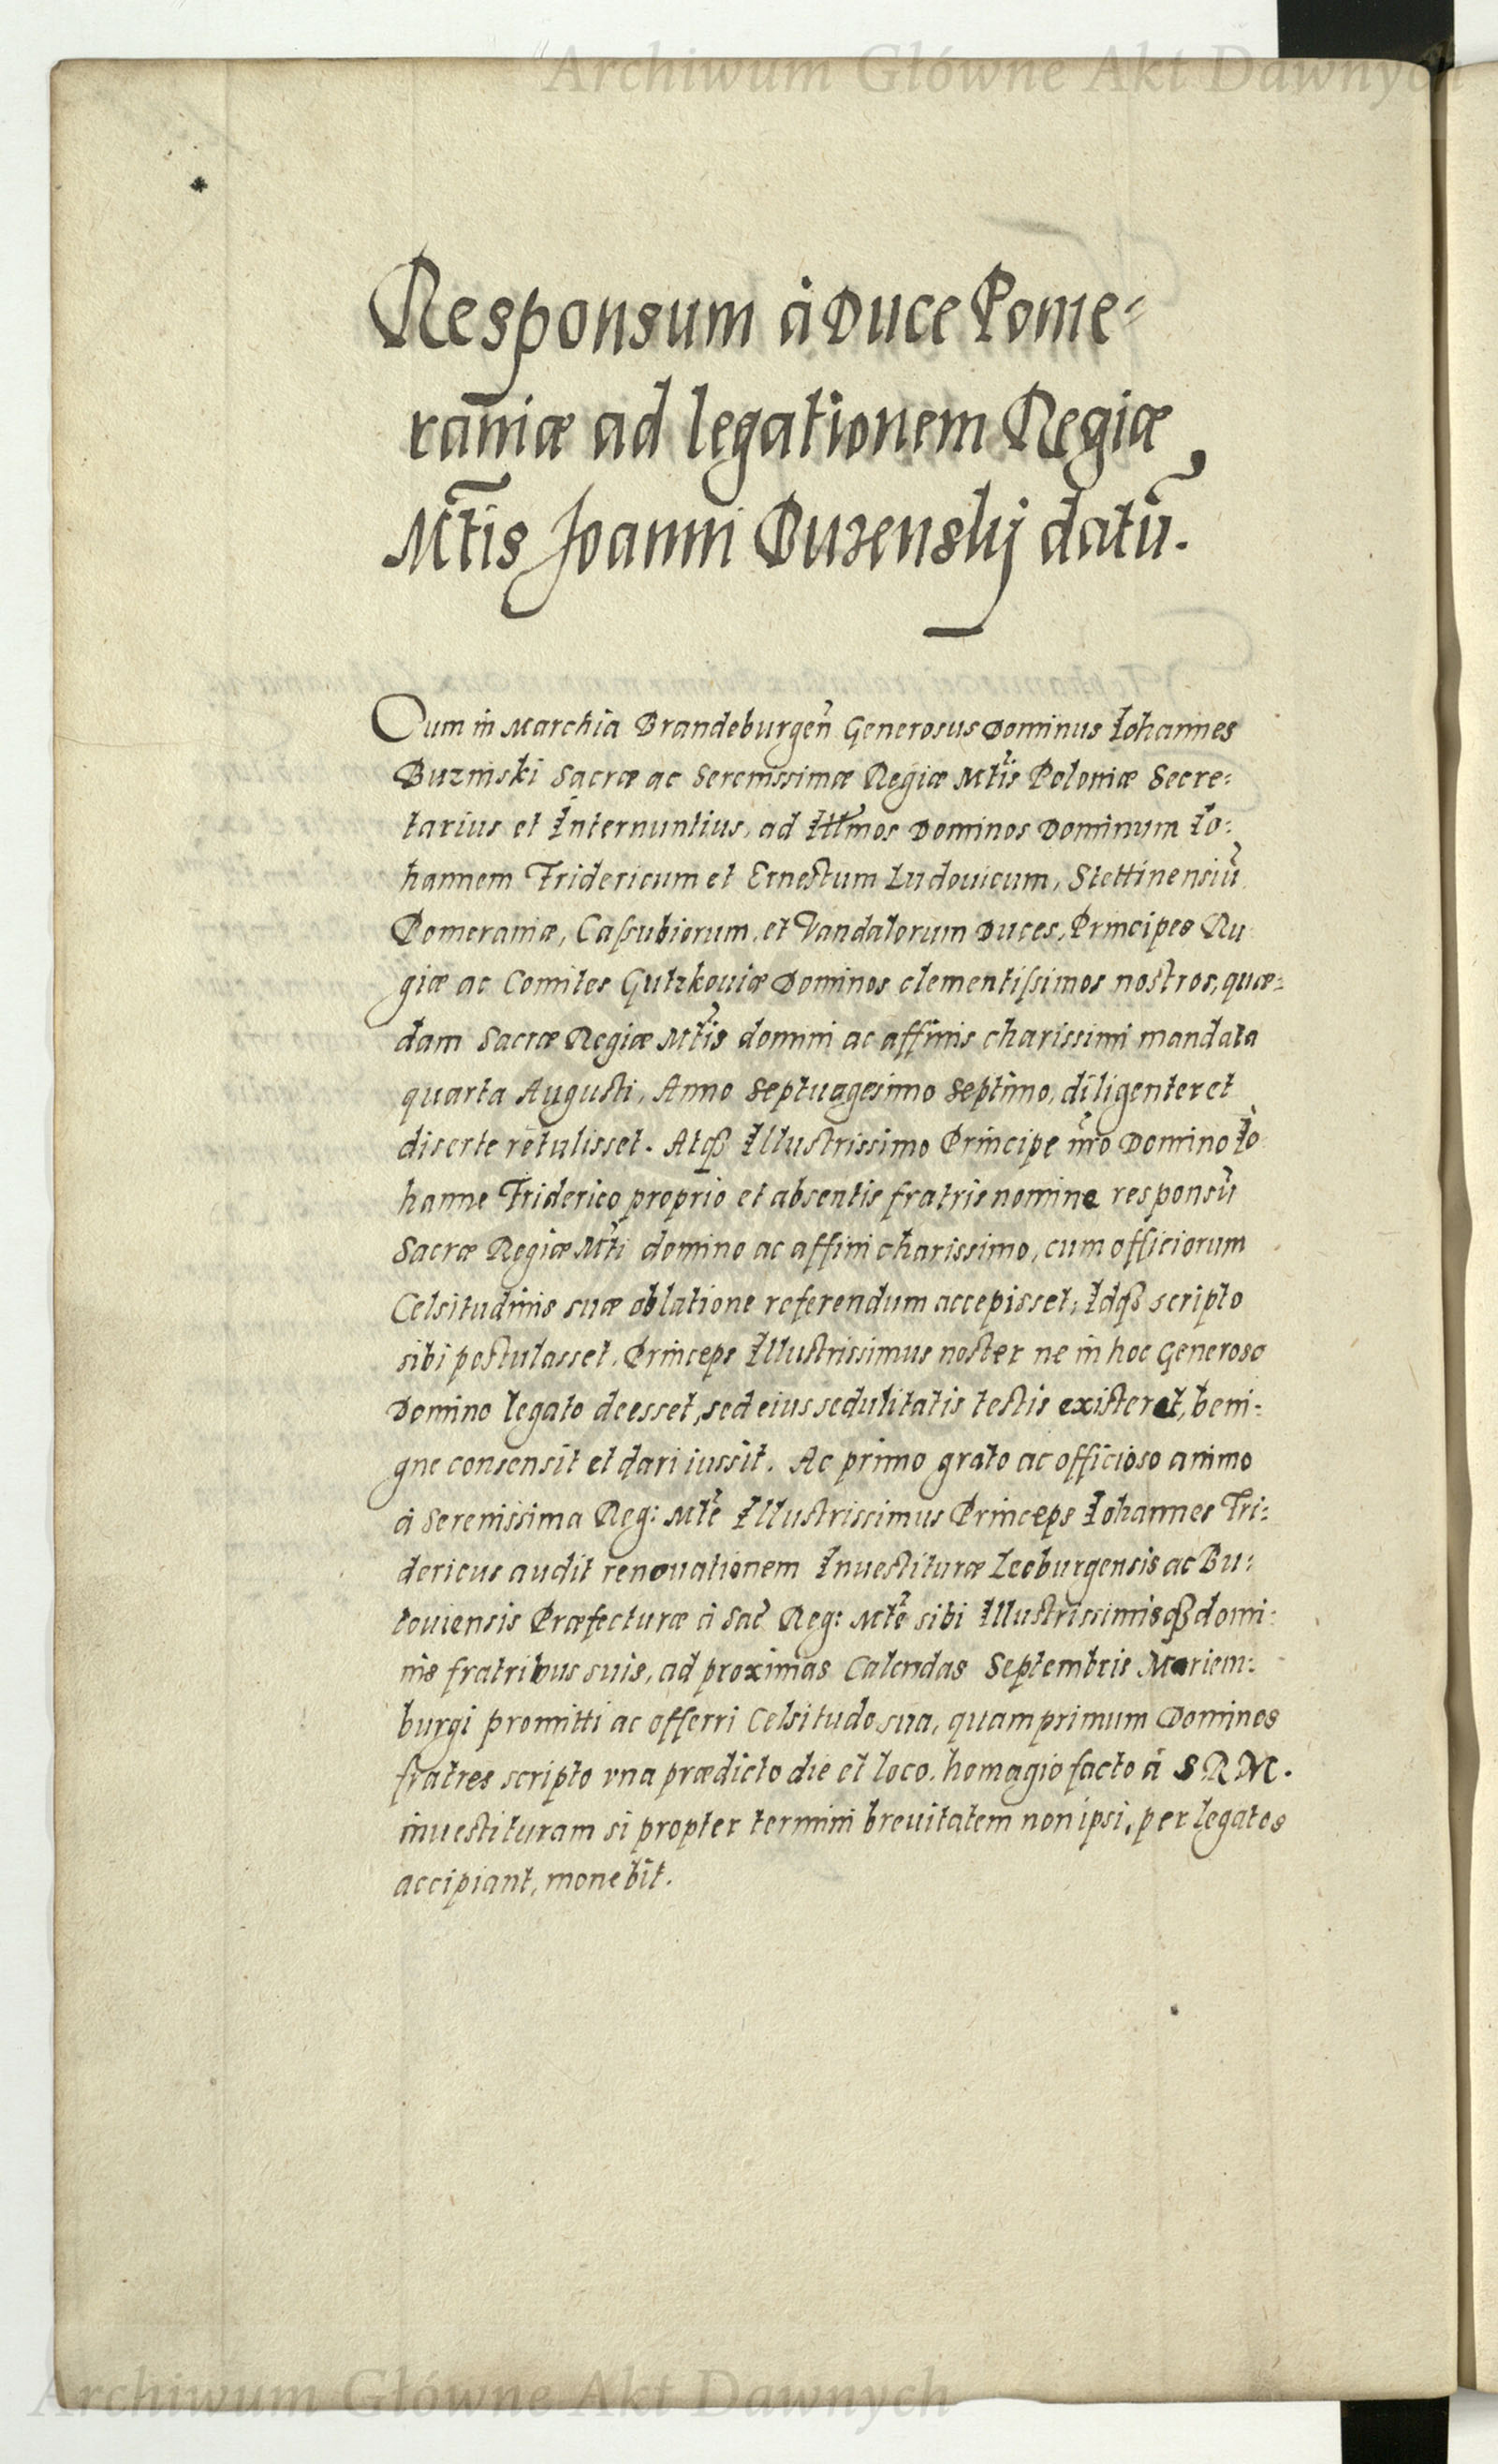 Archiwum Główne Akt Dawnych
Responsum à Duce Pome-
raniæ ad legationem Regiæ
Mtis Joanni Buzenskij datũ.
Cum in Marchia Brandeburgeñ Generosus Dominus Iohannes
Buzinski Sacræ ac Serenissimæ Regiæ Mtis Poloniæ Secre:
tarius et Internuntius, ad Illmos Dominos Dominum Io:
hannem Fridericum et Ernestum Ludouicum, Stettinensiũ
Pomeraniæ, Cassubiorum, et Vandalorum Duces, Principes Ru
giæ ac Comites Gutzkouiæ Dominos clementissimos nostros, quæ:
dam Sacræ Regiæ Mtis domini ac affinis charissimi mandata
quarta Augusti, Anno Septuagesimo Septimo, diligenter et
diserte retulisset. Atq́ Illustrissimo Principe nro Domino Io
hanne Friderico proprio et absentis fratris nomine responsũ
Sacræ Regiæ Mti domino ac affini charissimo, cum officiorum
Celsitudinis suæ oblatione referendum accepisset, Idq́ scripto
sibi postulasset. Princeps Illustrissimus noster ne in hoc Generoso
Domino legato deesset, sed eius sedulitatis testis existeret, beni:
gne consensit et dari iussit. Ac primo grato ac officioso animo
à Serenissima Reg: Mte Illustrissimus Princeps Iohannes Fri:
dericus audit renouationem Inuestituræ Leoburgensis ac Bu:
touiensis Præfecturæ à Sac Reg: Mte sibi Illustrissimisq́ domi:
nis fratribus suis, ad proximas Calendas Septembris Mariem:
burgi promitti ac offerri Celsitudo sua, quam primum Dominos
fratres scripto vna prædicto die et loco, homagio facto à S R M.
inuestituram si propter termini breuitatem non ipsi, per legatos
accipiant, monebit.
Archiwum Główne Akt Dawnych